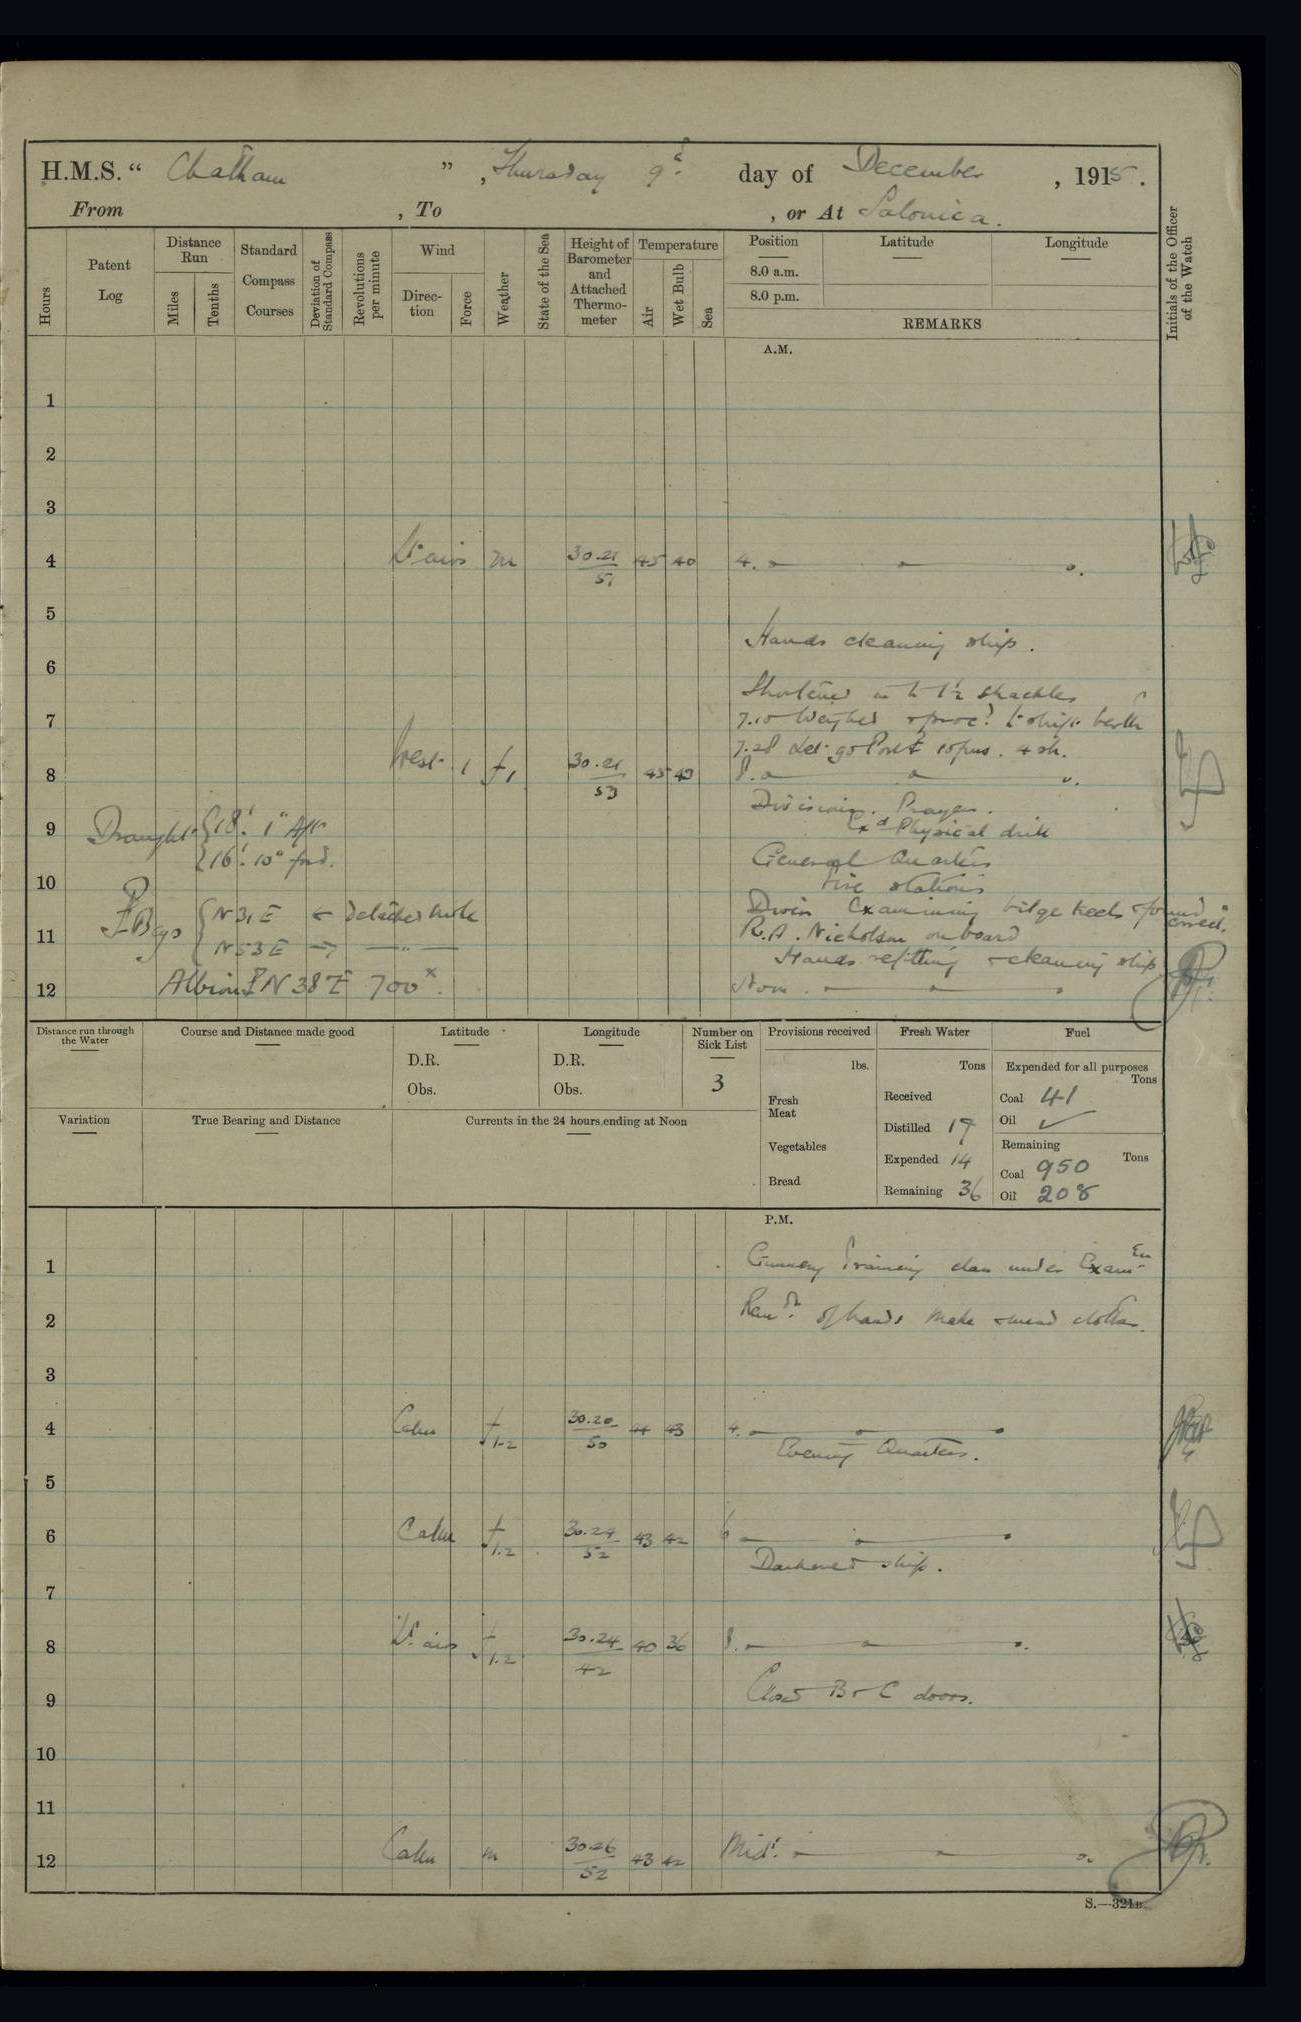 H.M.S. “ Chatham ” , Thursday 9th day of December , 1915 .
From , To , or At Salonica .
Hours
Patent Log
Distance Run
Miles
Tenths
Standard Compass Courses
Deviation of Standard Compass
Revolutions per minute
Wind
Direc- tion
Force
Weather
State of the Sea
Height of Barometer and Attached Thermo- meter
Temperature
Air
Wet Bulb
Sea
Position
Latitude
Longitude
8.0 a.m.
8.0 p.m.
REMARKS
Initials of the Officer of the Watch
A.M.
1
2
3
4 Lt airs m 30.21 51 45 40 4.
5
Hands cleaning ship .
6
Shortened in to 1½ shackles
7 7.10 Weighed & proc? to shift berth
7.28 Let go Port 10 fms . 4 sh.
8 West 1 f, 30.21 53 45 43 8.
Divisions . Prayers .
9 Draught {18' . 1" Aft Exd Physical drill
{16' . 10" ford. General Quarters
10 Fire stations
Bgs {N 31 E ← Detached mole Divers Examining bilge keels & found correct.
11 N 53 E → —"— R.A. Nicholson on board
Hands refitting & cleaning ship
12 Albion N 38 E 700x . Noon .
Distance run through the Water
Course and Distance made good
Latitude
D.R.
Obs.
Longitude
D.R.
Obs.
Number on Sick List
3
Provisions received
lbs.
Fresh Meat
Vegetables
Bread
Fresh Water
Tons
Received
Distilled 17
Expended 14
Remaining 36
Fuel
Expended for all purposes
Tons
Coal 41
Oil ✓
Remaining
Tons
Coal 950
Oil 208
Variation
True Bearing and Distance
Currents in the 24 hours ending at Noon
P.M.
1 Gunnery Training class under Exam En
2 Remdr of hands make & mend clothes.
3
4 Calm f 1.2 30.20 50 44 43 4.
Evening Quarters .
5
6 Calm f 1.2 30.24 52 43 42 6
Darkened ship .
7
8 Lt airs f 1.2 30.24 42 40 36 8.
9 Closed B & C doors.
10
11
12 Calm m 30.26 52 43 42 Midt.
S.—321B